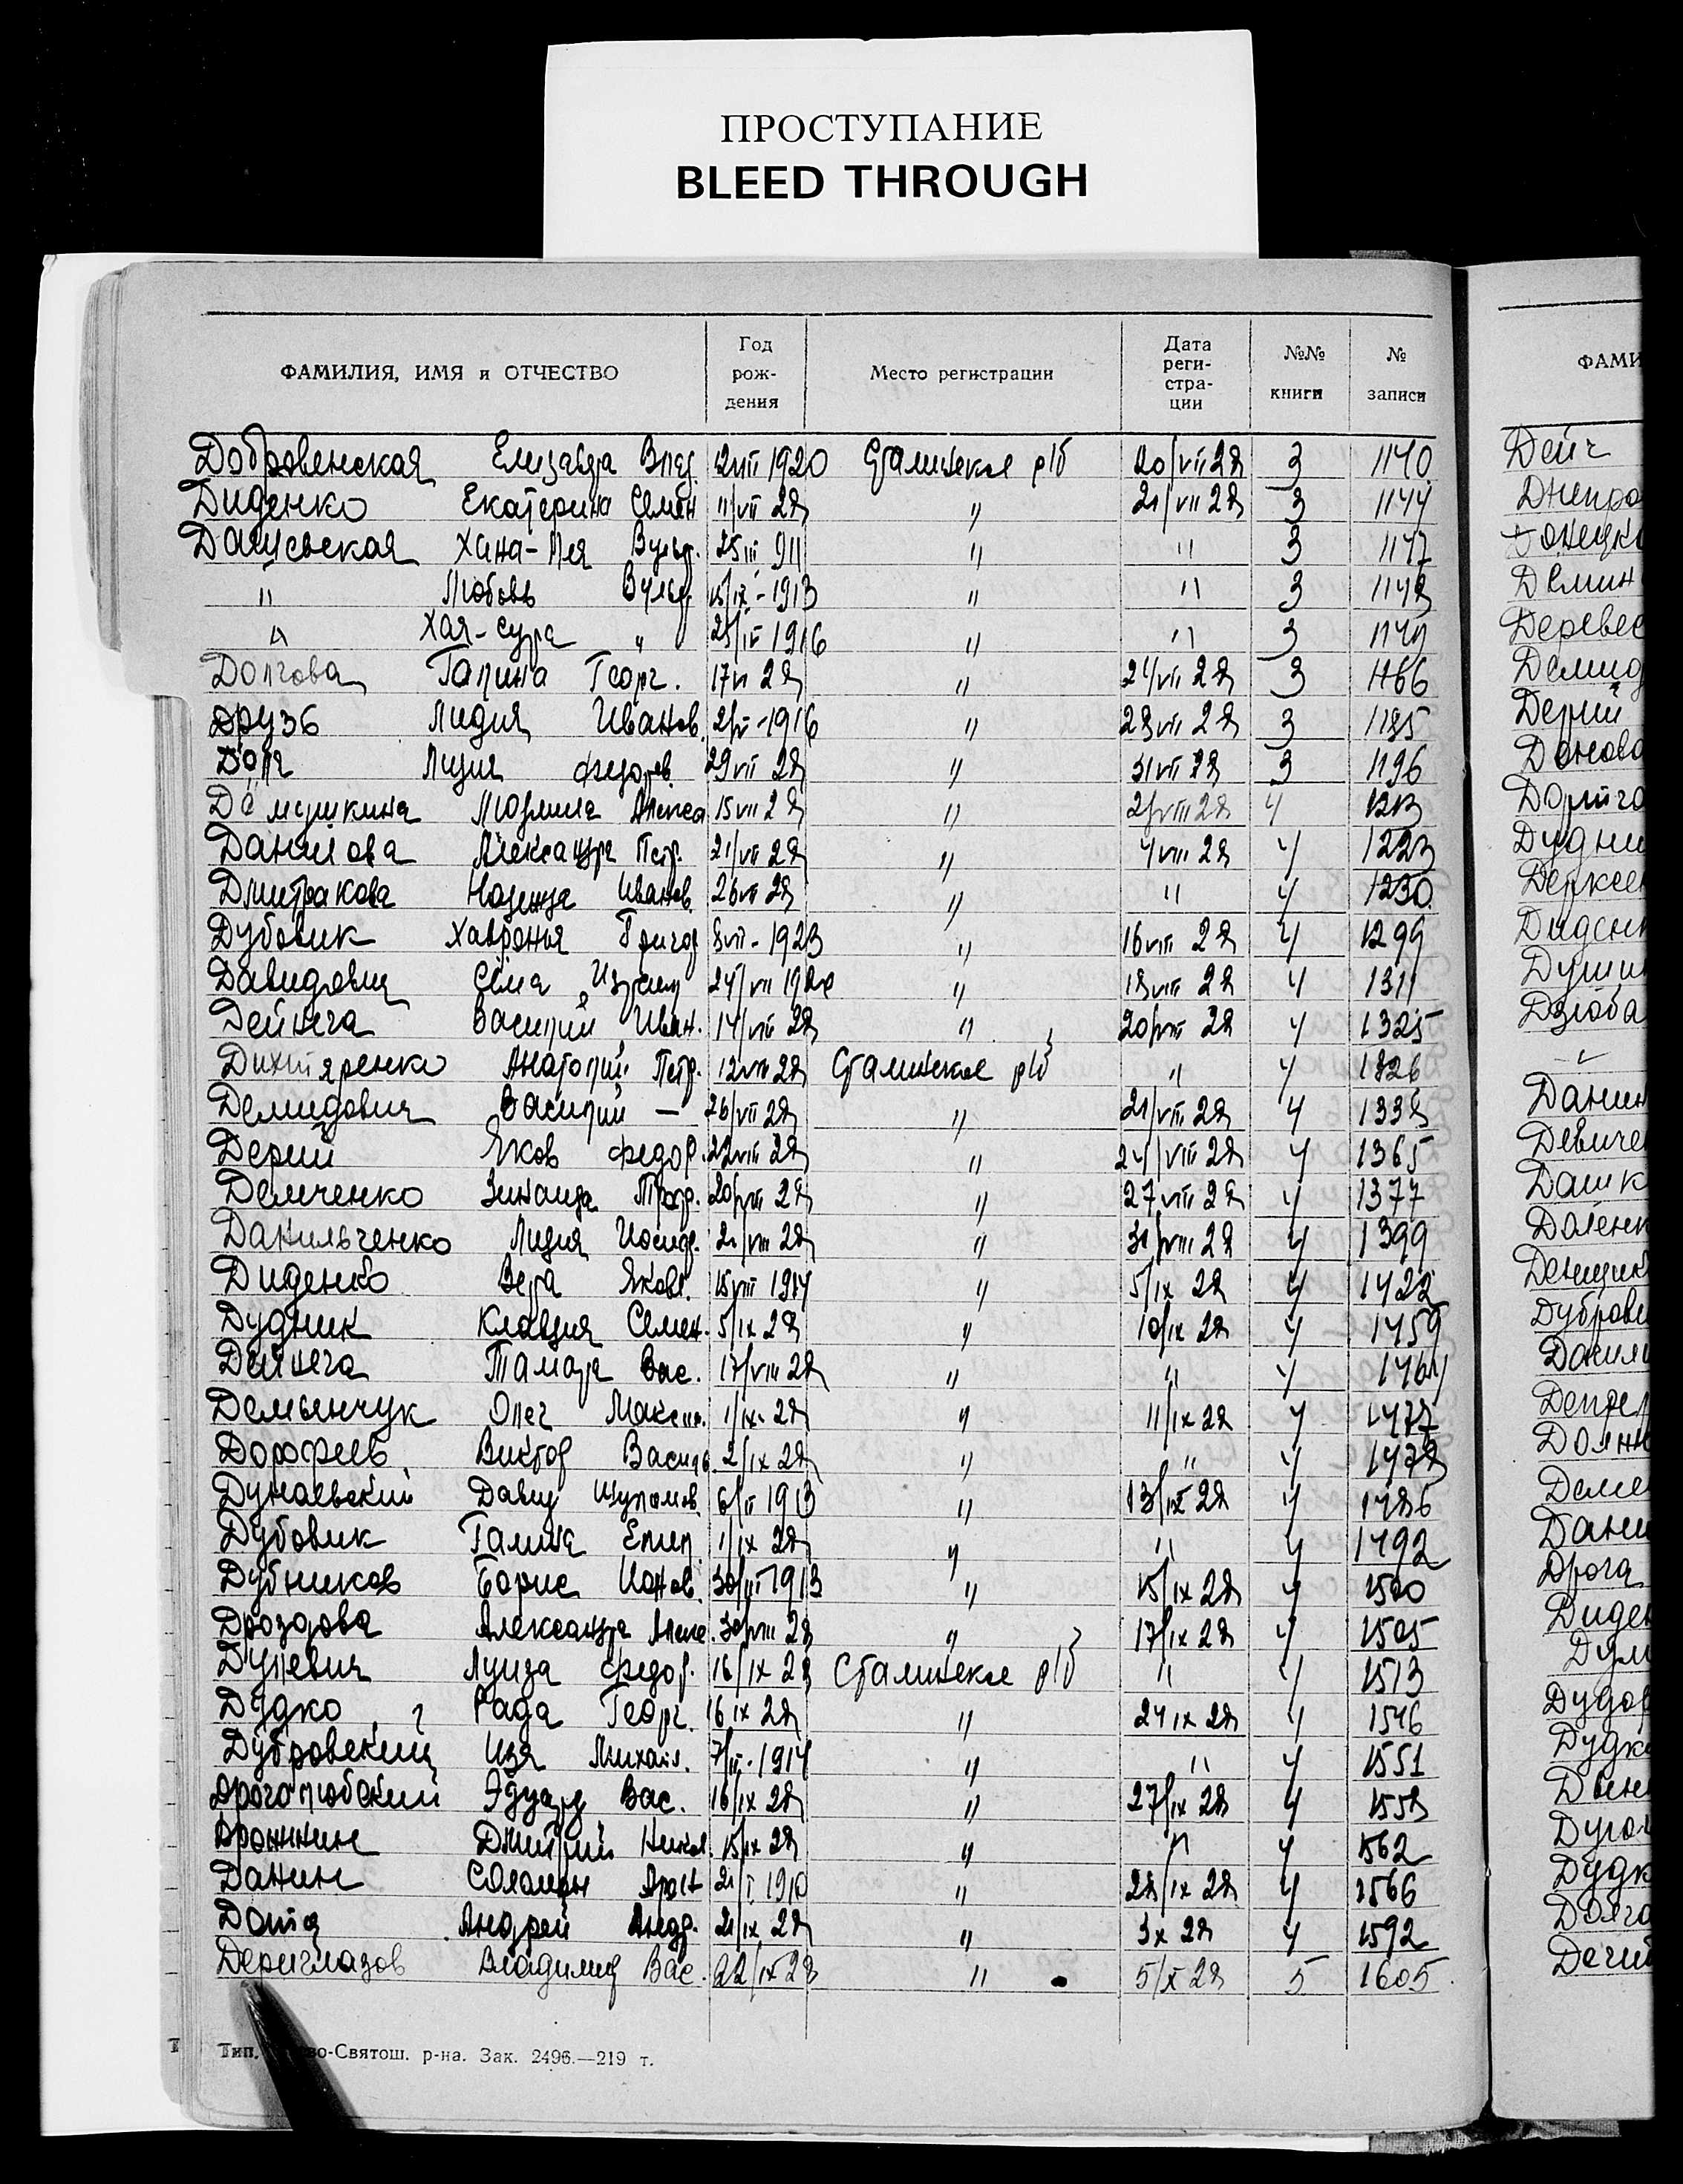 ПРОСТУПАНИЕ
BLEED THROUGH
ФАМИЛИЯ, ИМЯ и ОТЧЕСТВО Год рож- дения Место регистрации Дата реги- стра- ции №№ книги № записи
ФАМИ
Добровенская Елизавета Влад. 12 VII 1920 Сталинское р/б 20/VII 28 3 1140
Диденко Екатерина Семен 11/VII 28 " 21/VII 28 3 1144
Хана-Лея Вульф. 25 III 911 " " 3 1147
" Любовь Вульф 15/IX-1913 " " 3 1148
" Хая-Сура " 25/IV 1916 " " 3 1149
Долгова Галина Георг. 17 VI 28 " 24/VII 28 3 1166
Друзь Лидия Иванов. 1916 " 28 VII 28 3 1185
Лидия Федоров. 29 VII 28 " 31 VII 28 3 1196
Демушкина Людмила Алекса 15 VII 28 " 2/VIII 28 4 1213
Данилова Александра Петр. 21/VII 28 " 4 VIII 28 4 1223
Дмитракова Надежда Иванов. 26 VII 28 " " 4 1230
Дубовик Хавронья Григор 8 VII-1923 " 16 VIII 28 4 1299
Давидович Сема 24/VII " 18 VIII 28 4 1311
Дейнега Василий Иван. 14/VIII 28 " 20/VIII 28 4 1325
Дихтяренко Анатолий Петр. 12 VIII 28 Сталинское р/б " 4 1326
Демидович Василий — 26/VII 28 " 21/VIII 28 4 1338
Дерий Яков Федор. 22 VIII 28 " 24/VIII 28 4 1365
Демченко Зинаида Троф. 20/VIII 28 " 27 VIII 28 4 1377
Данильченко Лидия Иосиф. 21/VIII 28 " 31/VIII 28 4 1399
Диденко Вера Яковл. 15 VIII 1914 " 5/IX 28 4 1422
Дудник Клавдия Семен. 5/IX 28 " 10/IX 28 4 1459
Дейнега Тамара Вас. 17/VIII 28 " " 4 1464
Демьянчук Олег Максим. 1/IX-28 " 11/IX 28 4 1477
Дорофеев Виктор Василь. 2/IX 28 " " 4 1478
Дунаевский Давид Шулимов. 6/II 1913 " 13/IX 28 4 1486
Дубовик Галина Епип. 1/IX 28 " " 4 1492
Дубников Борис Ионов. 30/III 1913 " 15/IX 28 4 1500
Дроздова Александра Алекс. 30/VIII 28 " 17/IX 28 4 1505
Дулевич Луиза Федор. 16/IX 28 Сталинское р/б " 4 1513
Дудко Рада Георг. 16 IX 28 " 24 IX 28 4 1546
Дубровский Изя Михайл. 1914 " " 4 1551
Дроголюбский Эдуард Вас. 16/IX 28 " 27/IX 28 4 1558
Дронкин Дмитрий Никол. 15/IX 28 " " 4 1562
Данин Соломон Арон 21/I 1910 " 28/IX 28 4 1566
Андрей Андр. 21/IX 28 " 3 X 28 4 1592
Дериглазов Владимир Вас. 22/IX 28 " 5/X 28 5 1605
Дейч
Днепро
Донецко
Демин
Деревес
Демид
Дерий
Данова
Дудни
Дерксен
Диденк
Дзюба
Данил
Девиче
Дашк
Доленк
Денщик
Дуброви
Дани
Дрога
Диден
Дудко
Долго
Тип. во-Святош. р-на. Зак. 2496.—219 т.